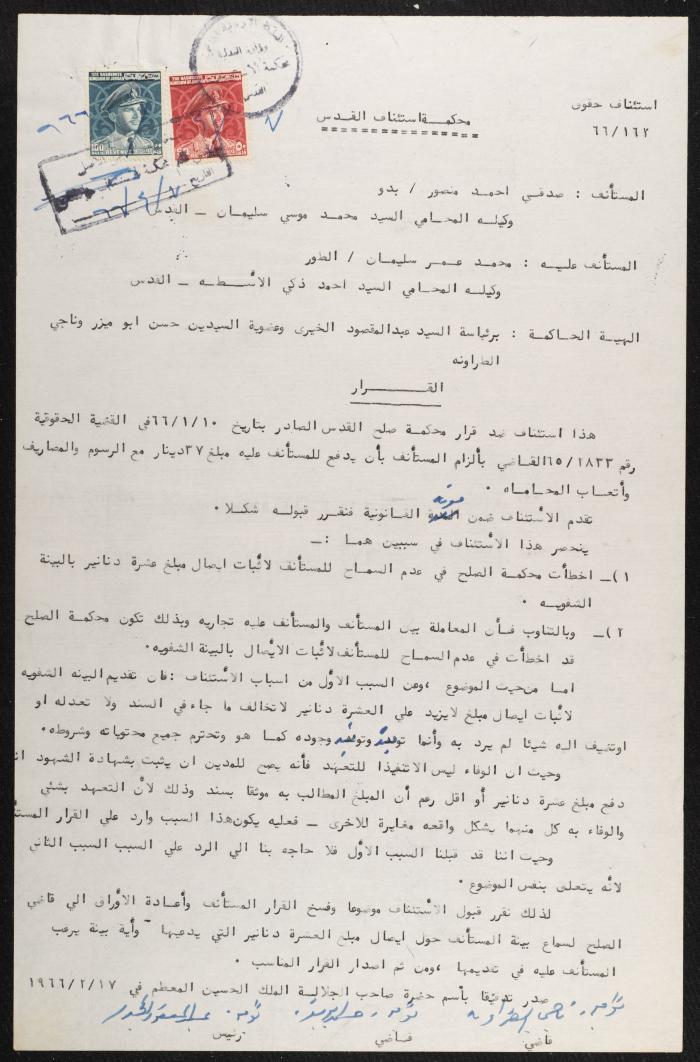 استئناف حقوق
٦٦/١٦٢
محكمة استئناف القدس
THE HASHEMITE KINGDOM OF JORDAN
THE HASHEMITE KINGDOM OF JORDAN
المستأنف : صدقي احمد منصور / بدو
وكيله المحامي السيد محمد موسي سليمان ـ القدس
المستأنف عليه : محمد عمر سليمان / الطور
وكيله المحامي السيد احمد ذكي الأسطه ـ القدس
الهيئة الحاكمة : برئاسة السيد عبدالمقصود الخيرى وعضوية السيدين حسن ابو ميزر وناجي
الطراونه
القــرار
هذا استئناف ضد قرار محكمة صلح القدس الصادر بتاريخ ٦٦/١/١٠ في القضية الحقوقية
رقم ٦٥/٢٨٣٣ القاضي بألزام المستأنف بأن يدفع للمستأنف عليه مبلغ ٣٧ دينار مع الرسوم والمصاريف
وأتعاب المحاماه ٠
تقدم الأستئناف ضمن مدته القانونية فنقرر قبوله شكلا ٠
ينحصر هذا الأستئناف في سببين هما :ـ
١)ـ اخطأت محكمة الصلح في عدم السماح للمستأنف لاثبات ايصال مبلغ عشرة دنانير بالبينة
الشفويه ٠
٢)ـ وبالتناوب فأن المعاملة بين المستأنف والمستأنف عليه تجاريه وبذلك تكون محكمة الصلح
قد اخطأت في عدم السماح للمستأنف لاثبات الايصال بالبينة الشفويه ٠
اما من حيث الموضوع ،وعن السبب الأول من اسباب الأستئناف :فان تقديم البينه الشفويه
لاثبات ايصال مبلغ لايزيد علي العشرة دنانير لاتخالف ما جاء في السند ولا تعدله او
اوتضيف اليه شيئا لم يرد به وأنما تؤيده وتؤيد وجوده كما هو وتحترم جميع محتوياته وشروطه ٠
وحيث ان الوفاء ليس الا تنفيذا للتعهد فأنه يصح للمدين ان يثبت بشهادة الشهود انه
دفع مبلغ عشرة دنانير أو اقل رغم أن المبلغ المطالب به موثقا بسند وذلك لأن التعهد بشئي
والوفاء به كل منهما يشكل واقعه مغايرة للاخرى ـ فعليه يكون هذا السبب وارد علي القرار المستأ
وحيث اننا قد قبلنا السبب الأول فلا حاجه بنا الي الرد علي السبب السبب الثاني
لأنه يتعلق بنفس الموضوع ٠
لذلك نقرر قبول الأستئناف موضوعا وفسخ القرار المستأنف وأعادة الأوراق الي قاضي
الصلح لسماع بينة المستأنف حول ايصال مبلغ العشرة دنانير التي يدعيها وأية بينة يرغب
المستأنف عليه في تقديمها ،ومن ثم اصدار القرار المناسب ٠
صدر تدقيقا بأسم حضرة صاحب الجلالة الملك الحسين المعظم في ١٩٦٦/٢/١٧
قاضي قاضي رئيس